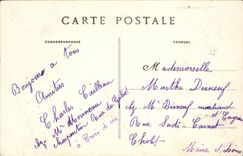 CARTE POSTALE
CORRESPONDANCE
ADRESSE
Bonjours a tous
Amitiés
Charles Cailleau
chez Mr Monneau
charpentier Rue du
Mademoiselle
Marthe Durneuf
chez Mr Durneuf marchand
Rue Sadi-Carnot
Cholet
Maine et Loire